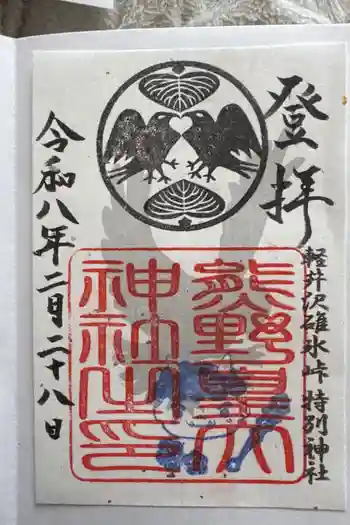 登拝
軽井沢碓氷峠 特別神社
熊野皇大
神社之印
令和八年二月二十八日